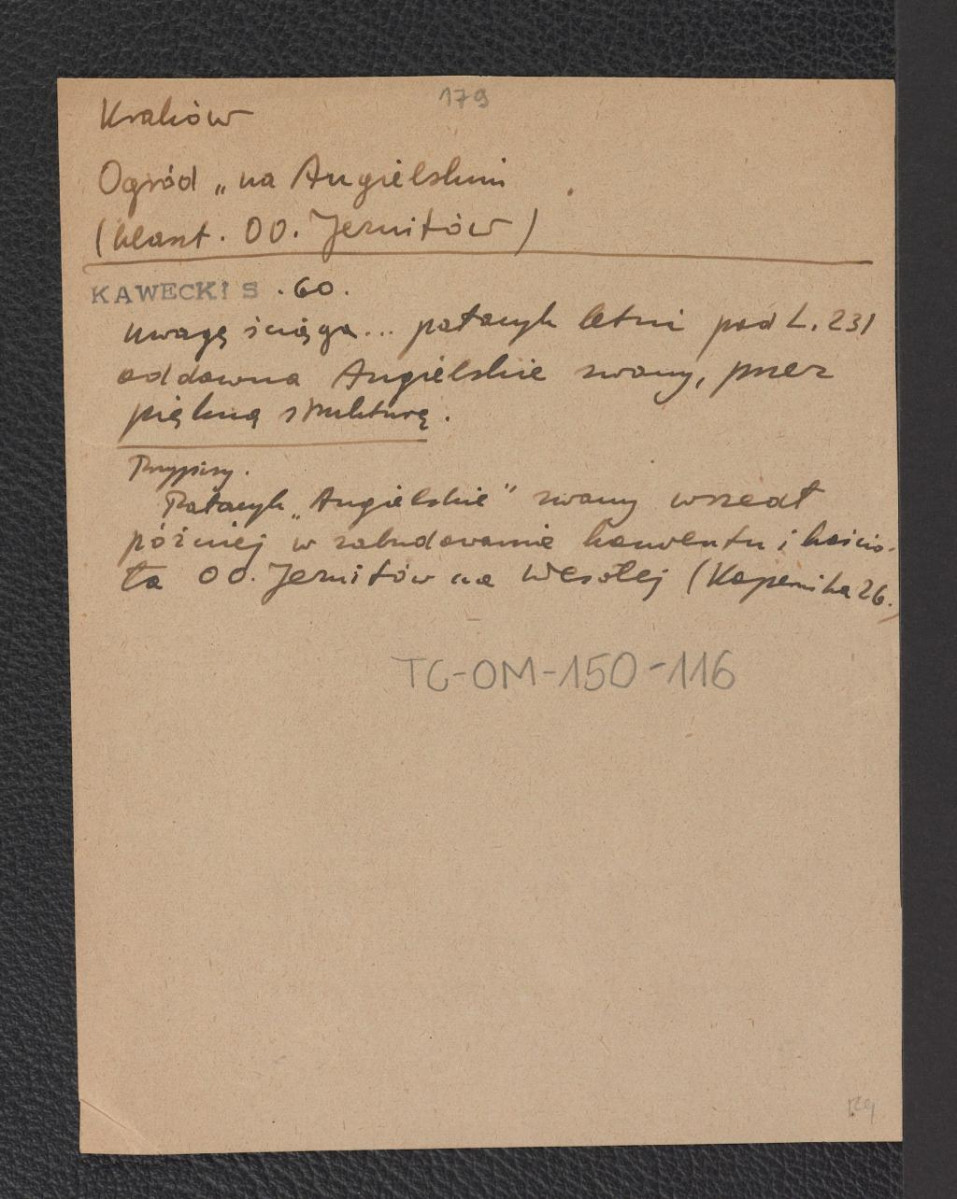 179
Kraków
Ogród „na Angielskim
(klaszt. OO. Jezuitów)
KAWECKI S .60.
uwagę ściąga... pałacyk letni pod L. 231
oddawna Angielskie zwany, przez
piękną strukturę.
Przypisy.
Pałacyk „Angielskie" zwany wszedł
później w zabudowanie konwentu i kościo-
ła OO. Jezuitów na Wesołej (Kopernika 26.
TC-OM-150-116